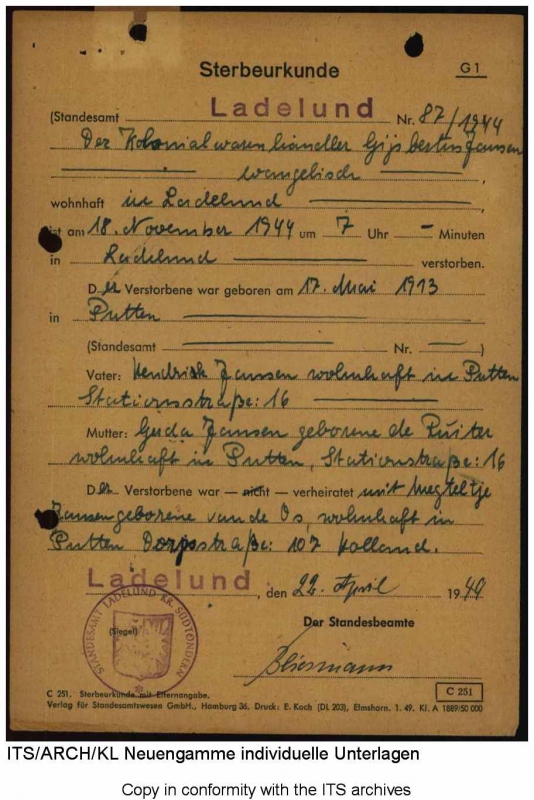 Sterbeurkunde
G 1
(Standesamt Ladelund Nr. 87/1944
Der Kolonialwarenhändler Gijsbertus Jansen
evangelisch
wohnhaft in Ladelund
ist am 18. November 1944 um 7 Uhr — Minuten
in Ladelund verstorben.
Der Verstorbene war geboren am 17. Mai 1913
in Putten
(Standesamt — Nr. — )
Vater: Hendrik Jansen wohnhaft in Putten
Stationsstraße: 16
Mutter: Guda Jansen geborene de Ruiter
wohnhaft in Putten, Stationstraße: 16
Der Verstorbene war — nicht — verheiratet mit Megteltje
Jansen geborene van de Os, wohnhaft in
Putten Dorpsstraße: 107 Holland.
Ladelund, den 22. April 1949
(Siegel)
STANDESAMT LADELUND KR. SÜDTONDERN
Der Standesbeamte
C 251. Sterbeurkunde mit Elternangabe.
Verlag für Standesamtswesen GmbH., Hamburg 36. Druck: E. Koch (DL 203), Elmshorn. 1. 49. Kl. A 1889/50 000
C 251
ITS/ARCH/KL Neuengamme individuelle Unterlagen
Copy in conformity with the ITS archives